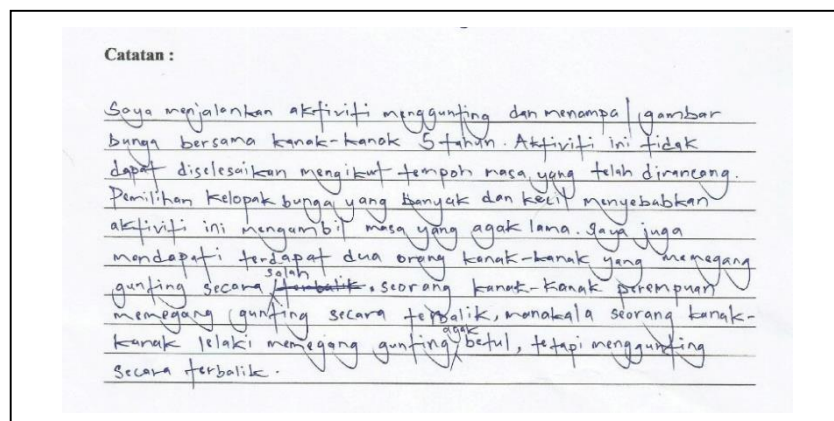 Catatan :
Saya menjalankan aktiviti menggunting dan menampal gambar
bunga bersama kanak-kanak 5 tahun. Aktiviti ini tidak
dapat diselesaikan mengikut tempoh masa yang telah dirancang.
Pemilihan kelopak bunga yang banyak dan kecil menyebabkan
aktiviti ini mengambil masa yang agak lama. Saya juga
mendapati terdapat dua orang kanak-kanak yang memegang
gunting secara salah terbalik. Seorang kanak-kanak perempuan
memegang gunting secara terbalik, manakala seorang kanak-
kanak lelaki memegang gunting agak betul, tetapi menggunting
secara terbalik.